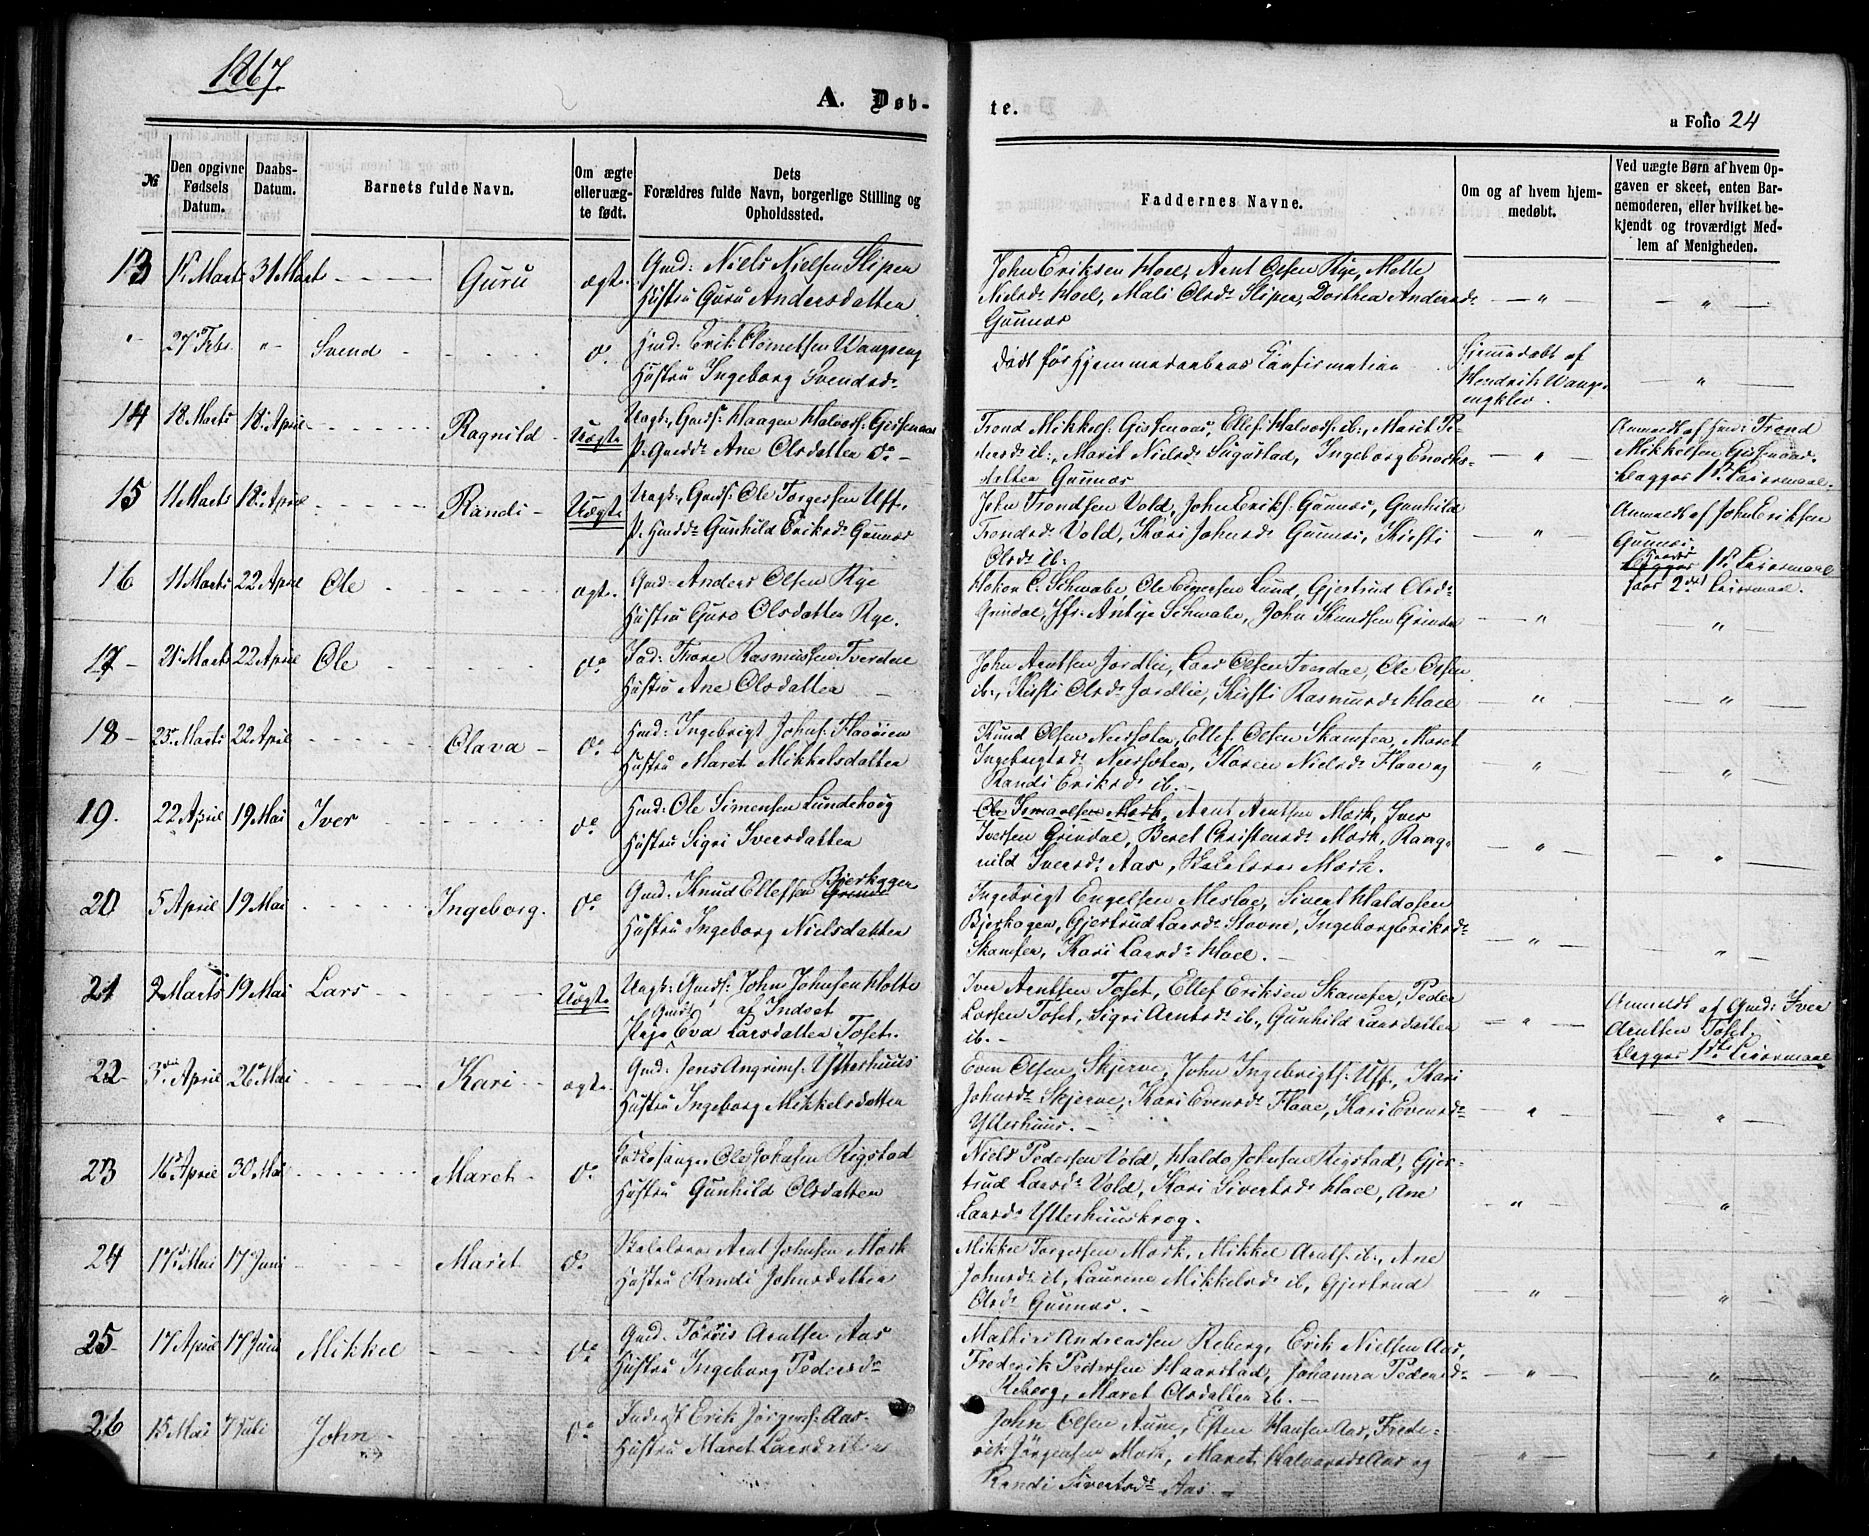 1867.
A. Døb-
te.
a Folio 24
№
Den opgivne Fødsels Datum.
Daabs-Datum.
Barnets fulde Navn.
Om ægte eller uæg-te født.
Dets Forældres fulde Navn, borgerlige Stilling og Opholdssted.
Faddernes Navne.
Om og af hvem hjem-medøbt.
Ved uægte Børn af hvem Op-gaven er skeet, enten Bar-nemoderen, eller hvilket be-kjendt og troværdigt Med-lem af Menigheden.
13 Marts 31 Marts Guru ægte.
Gmd: Niels Nielsen Slipen
Hustru Guru Andersdatter
John Eriksen Hoel, Arnt Olsen Rye, Mette
Nielsd: Hoel, Mali Olsd: Slipen, Dorthea Andersd:
Gunnes
" 27 Febr. " Svend do
Hmd: Erik Wangseng
Hustru Ingeborg Svendsd:
Død før Hjemmedaabens Confirmation
Hjemmedøbt af
Hendrik Wangs-
engklev.
14 18 Marts 18. April Ragnild Uægte
Ungk., Gmds: Haagen Halvors:
P. Gmdd: Ane Olsdatter do
Trond Mikkels: Gisnaas, Ellef Halvors: ib:, Marit Pe-
dersd: ib:, Marit Nielsd: Sugustad, Ingeborg Enochs-
datter Gunnes
Anmeldt af Gmd: Trond
Mikkelsen Gisnaas.
begges 1ste Leiermaal.
15 11 Marts 18. April Randi Uægte
Ungk., Gmds: Ole Torgersen Uff,
P. Hmdd: Gunhild Eriksd: Gunnes
John Trondsen Vold, John Eriks: Gunnes, Gunhild
Trondsd: Vold, Kari Johnsd: Gunnes, Kirsti
Olsd: ib:
Anmeldt af John Eriksen
Gunnes.
begges 1ste Leiermaal
fars 2det Leiermaal.
16 11 Marts 22 April Ole ægt.
Gmd: Anders Olsen Rye
Hustru Guro Olsdatter Rye.
Hakon C. Schwabe, Ole Lund, Gjertrud Olsd:
Grindal, Jfr: Antije Schwabe, John Knudsen Grindal
17 21 Marts 22 April Ole do
Ind: Thore Rasmussen Tverdal
Hustru Ane Olsdatter
John Arntsen Jordlie, Lars Olsen Tverdal, Ole Olsen
ib:, Kirsti Olsd: Jordlie, Kirsti Rasmusd: Hoel
18 25 Marts 22 April Olava do
Hmd: Ingebrigt Johns:
Hustru Maret Mikkelsdatter
Knud Olsen, Ellef Olsen Skamfer, Maret
Ingebrigtsd:, Karen Nielsd: Flaae og
Randi Eriksd: ib.
19. 22 April 19 Mai Iver do
Hmd: Ole Simensen Lundehoug
Hustru Sigri Iversdatter
Ole Mærk, Arnt Arntsen Mærk, Iver
Iversen Grindal, Beret Christensd: Mærk, Rang-
nild Iversd: Aas, Mærk.
20 5 April 19 Mai Ingeborg. do
Gmd: Knud Ellefsen Bjerkager
Hustru Ingeborg Nielsdatter
Ingebrigt Engelsen Mesloe, Sivert Haldosen
Bjerkagen, Gjertrud Larsd: Stovne, Ingeborg Eriksd:
Skamfer, Kari Larsd: Hoel.
21 2 Marts 19 Mai Lars Uægte
Ungk: Gmds: John Johnsen Holte
af Indset
Pige Eva Larsdatter Toset.
Iver Arntsen Toset, Ellef Eriksen Skamfer, Peder
Larsen Toset, Sigri Arntsd: ib:, Gunhild Larsdatter
ib.
Anmeldt af Gmd: Iver
Arntsen Toset.
begges 1ste Leiermaal
22 3die April 26 Mai Kari ægte.
Gmd: Jens Angrims: Ytterhuus
Hustru Ingeborg Mikkelsdatter
Even Olsen Skjerve, John Ingebrigts: Uff, Kari
Johnsd: Skjerve, Kari Evensd: Flaae, Kari Evensd:
Ytterhuus.
23 16. April 30 Mai Maret do
Ole Johnsen Rigstad
Hustru Gunhild Olsdatter
Niels Pedersen Vold, Haldo Johnsen Rigstad, Gjer-
trud Larsd: Vold, Kari Sivertsd: Hoel, Ane
Larsd: Ytterhuuskrog.
24 17. Mai 17 Juni Maret do
Arnt Johnsen Mærk
Hustru Randi Johnsdatter
Mikkel Torgersen Mærk, Mikkel Arnts: ib:, Ane
Johnsd: ib, Laurine Mikkelsd: ib, Gjertrud
Olsd: Gunnes.
25 17 April 17 Juni Mikkel do
Gmd: Arntsen Aas
Hustru Ingeborg Pedersd:
Mathias Andreassen Reberg, Erik Nielsen Aas,
Frederik Pedersen Haarstad, Johanna Pedersd:
Reberg, Maret Olsdatter ib.
26 15 Mai 7 Juli John do
Inderst Erik Jørgens: Aas
Hustru Maret Larsdatter
John Olsen Aune, Esten Hansen Aas, Frede-
rik Jørgensen Mærk, Maret Halvorsd: Aas og
Randi Sivertsd: Aas.